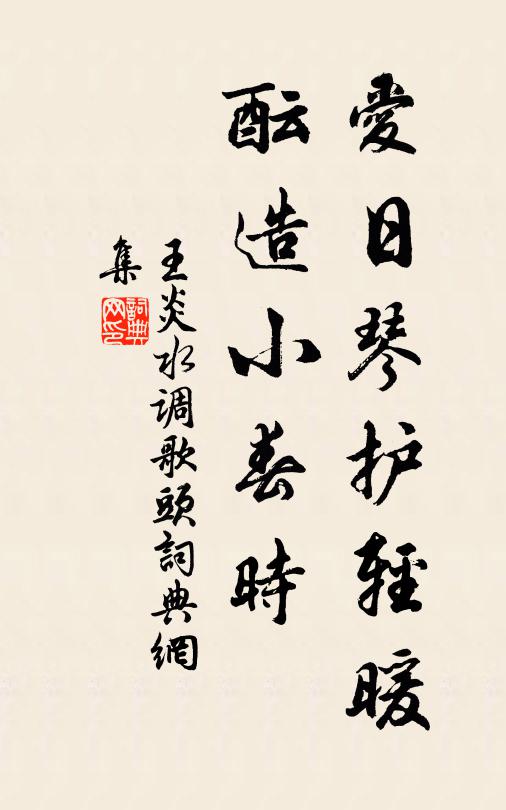 愛日琴护輕暖
酝造小春時
王炎水调歌頭詞典網
集
詞典
网印